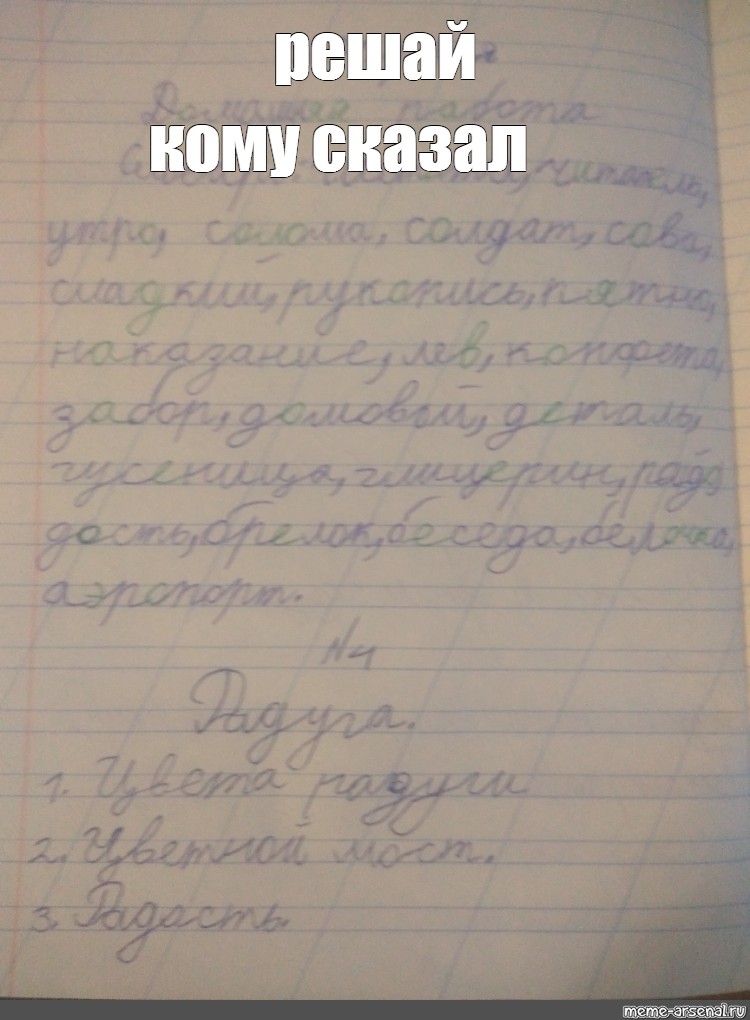 решай
Домашняя работа
кому сказал
читатель,
утро, солома, солдат, сова,
сладкий, рукопись, пятно,
наказание, лев, конфета,
забор, домовый, деталь,
гусеница, глицерин, рада
дость, брелок, беседа, белочка,
аэропорт.
№4
Радуга.
1. Цвета радуги
2. Цветной мост.
3. Радость.
meme-arsenal.ru